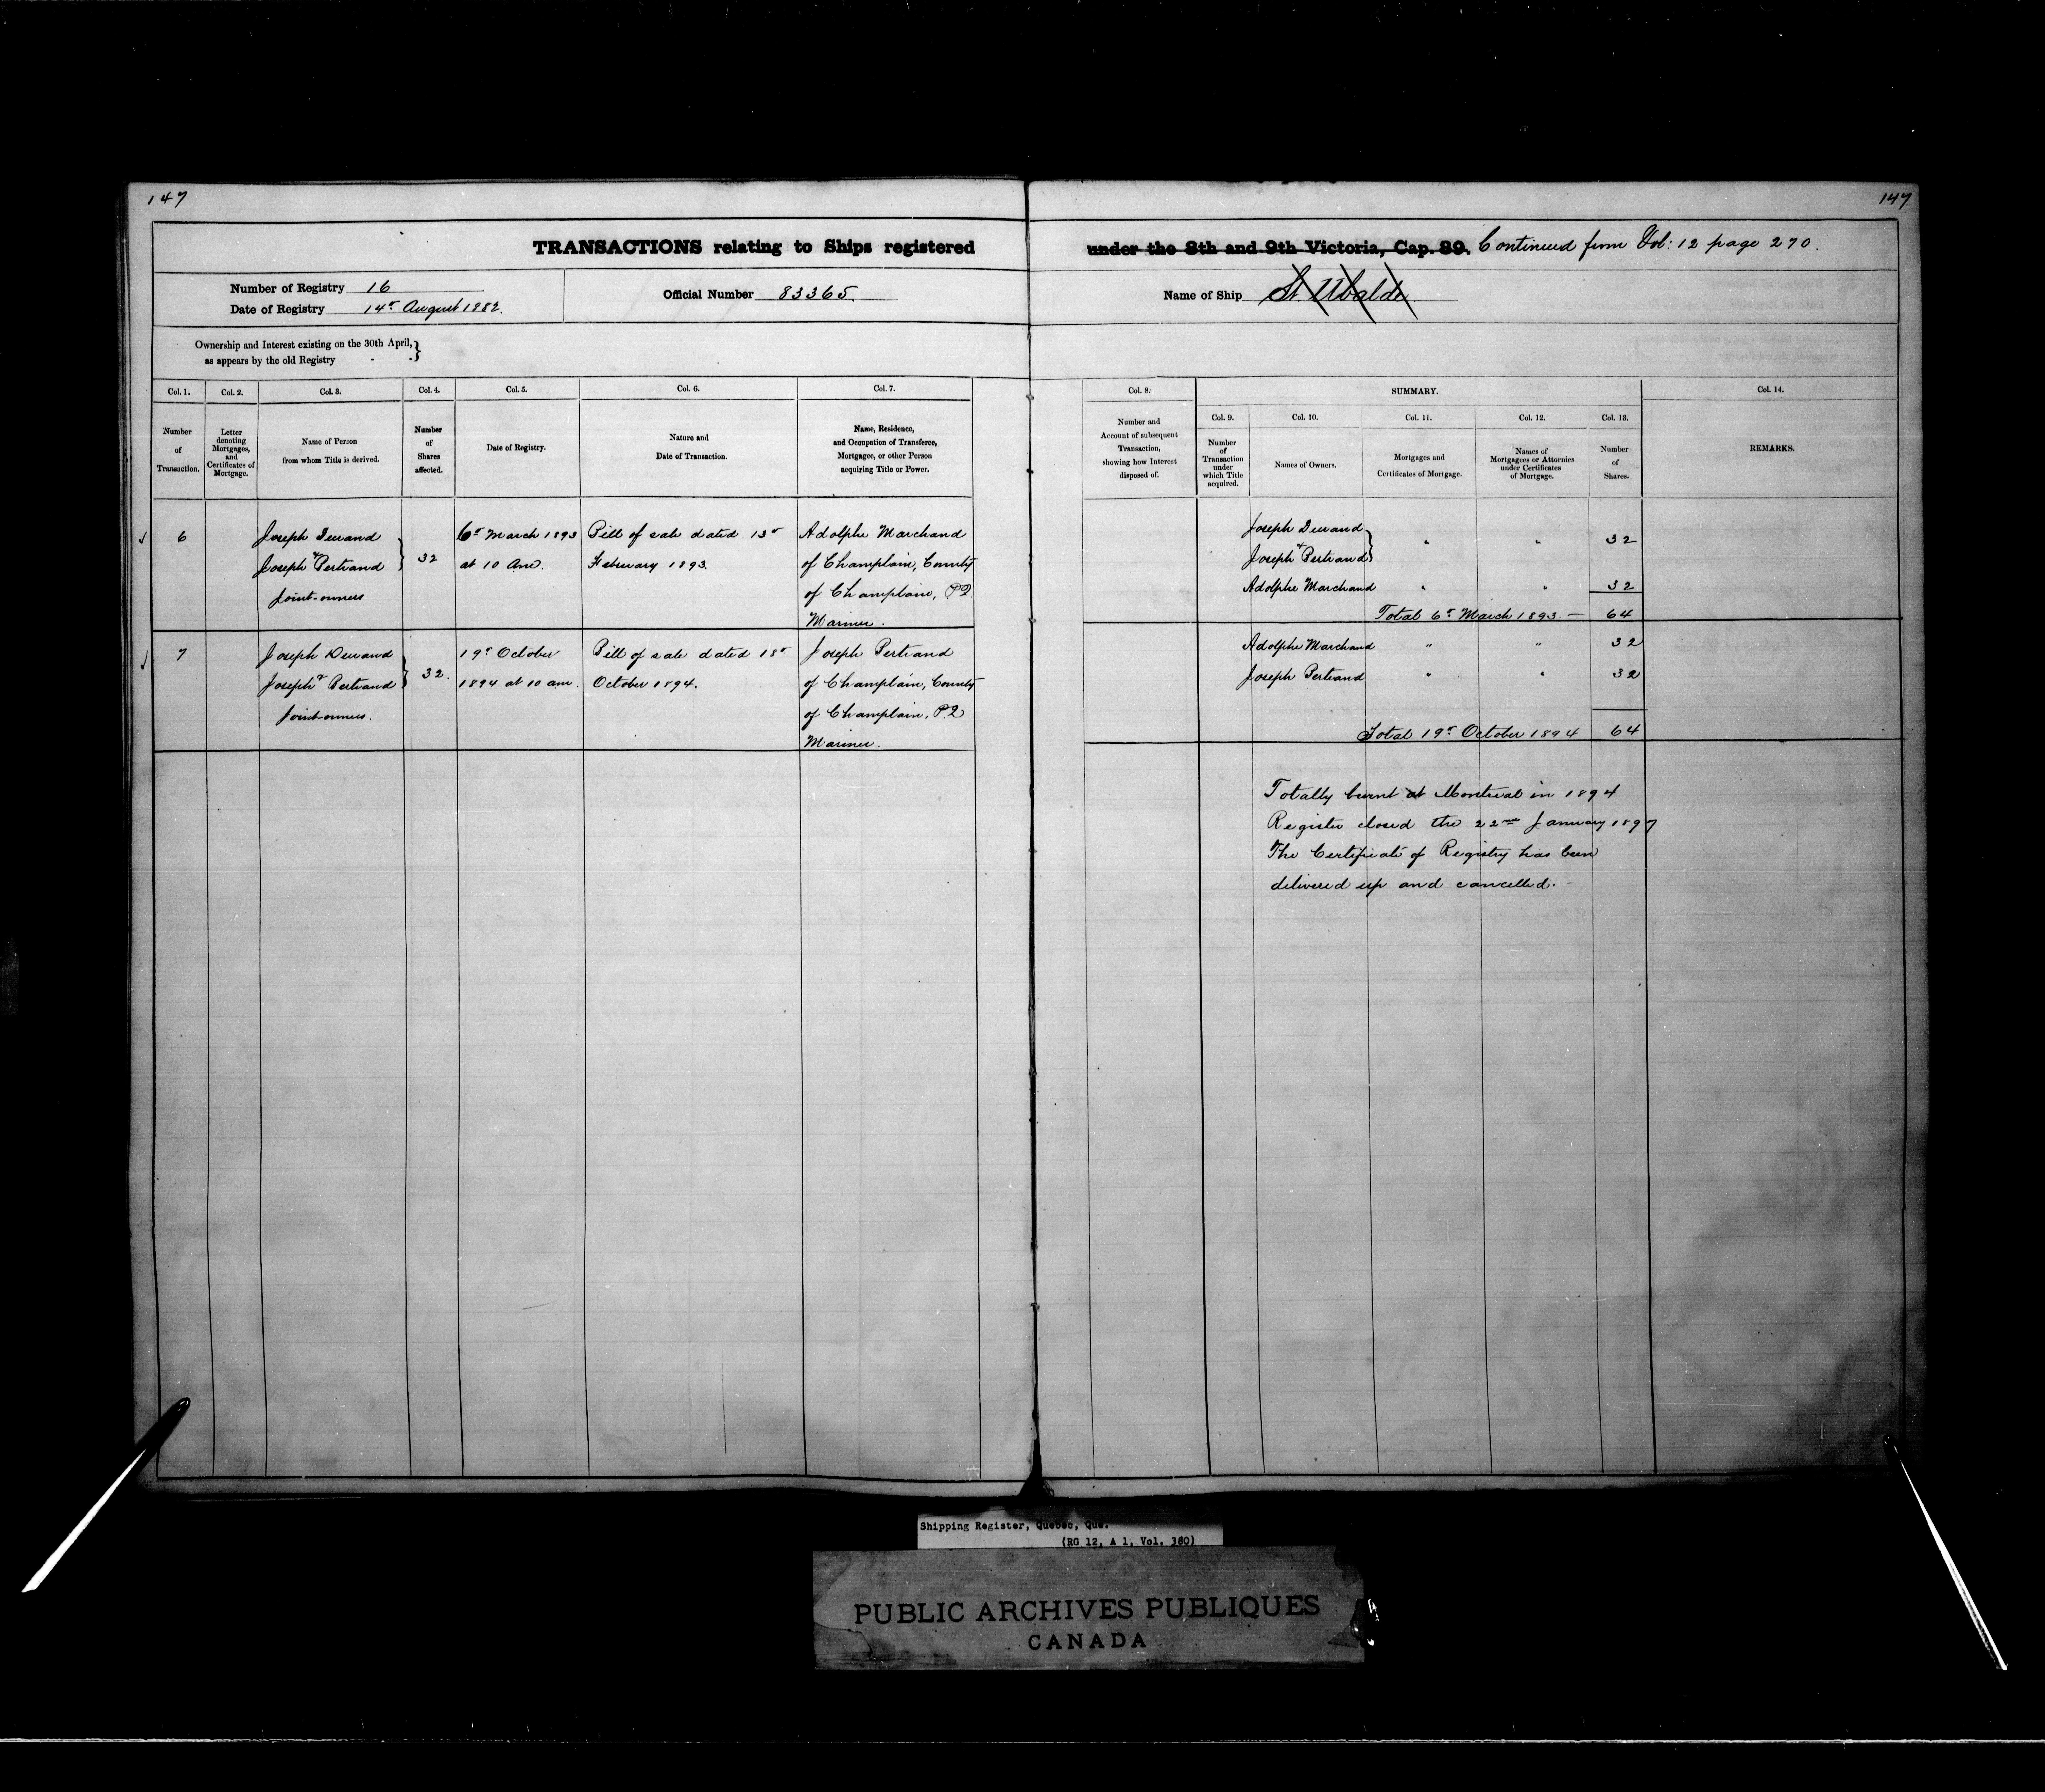 147
147
TRANSACTIONS relating to Ships registered
under the 8th and 9th Victoria, Cap. 89. Continued from Vol: 12 page 270.
Number of Registry 16
Date of Registry 14th August 1882.
Official Number 83365.
Name of Ship St. Ubalde
Ownership and Interest existing on the 30th April,
as appears by the old Registry
Col. 1.
Number
of
Transaction.
Col. 2.
Letter
denoting
Mortgages,
and
Certificates of
Mortgage.
Col. 3.
Name of Person
from whom Title is derived.
Col. 4.
Number
of
Shares
affected.
Col. 5.
Date of Registry.
Col. 6.
Nature and
Date of Transaction.
Col. 7.
Name, Residence,
and Occupation of Transferee,
Mortgagee, or other Person
acquiring Title or Power.
Col. 8.
Number and
Account of subsequent
Transaction,
showing how Interest
disposed of.
SUMMARY.
Col. 9.
Number
of
Transaction
under
which Title
acquired.
Col. 10.
Names of Owners.
Col. 11.
Mortgages and
Certificates of Mortgage.
Col. 12.
Names of
Mortgagees or Attornies
under Certificates
of Mortgage.
Col. 13.
Number
of
Shares.
Col. 14.
REMARKS.
6
Joseph Durand
& Joseph Bertrand
Joint-owners
32
6th March 1893
at 10 Am.
Bill of sale dated 13th
February 1893.
Adolphe Marchand
of Champlain, County
of Champlain, P2
Mariner.
Joseph Durand
& Joseph Bertrand " " 32
Adolphe Marchand " " 32
Total 6th March 1893 — 64
7
Joseph Durand
& Joseph Bertrand
Joint-owners.
32.
19th October
1894 at 10 am.
Bill of sale dated 18th
October 1894.
Joseph Bertrand
of Champlain, County
of Champlain, P.2
Mariner.
Adolphe Marchand " " 32
Joseph Bertrand " " 32
Total 19th October 1894 64
Totally burnt at Montreal in 1894
Register closed the 22nd January 1897
The Certificate of Registry has been
delivered up and cancelled. -
Shipping Register, Quebec, Que.
(RG 12, A 1, Vol. 380)
PUBLIC ARCHIVES PUBLIQUES
CANADA